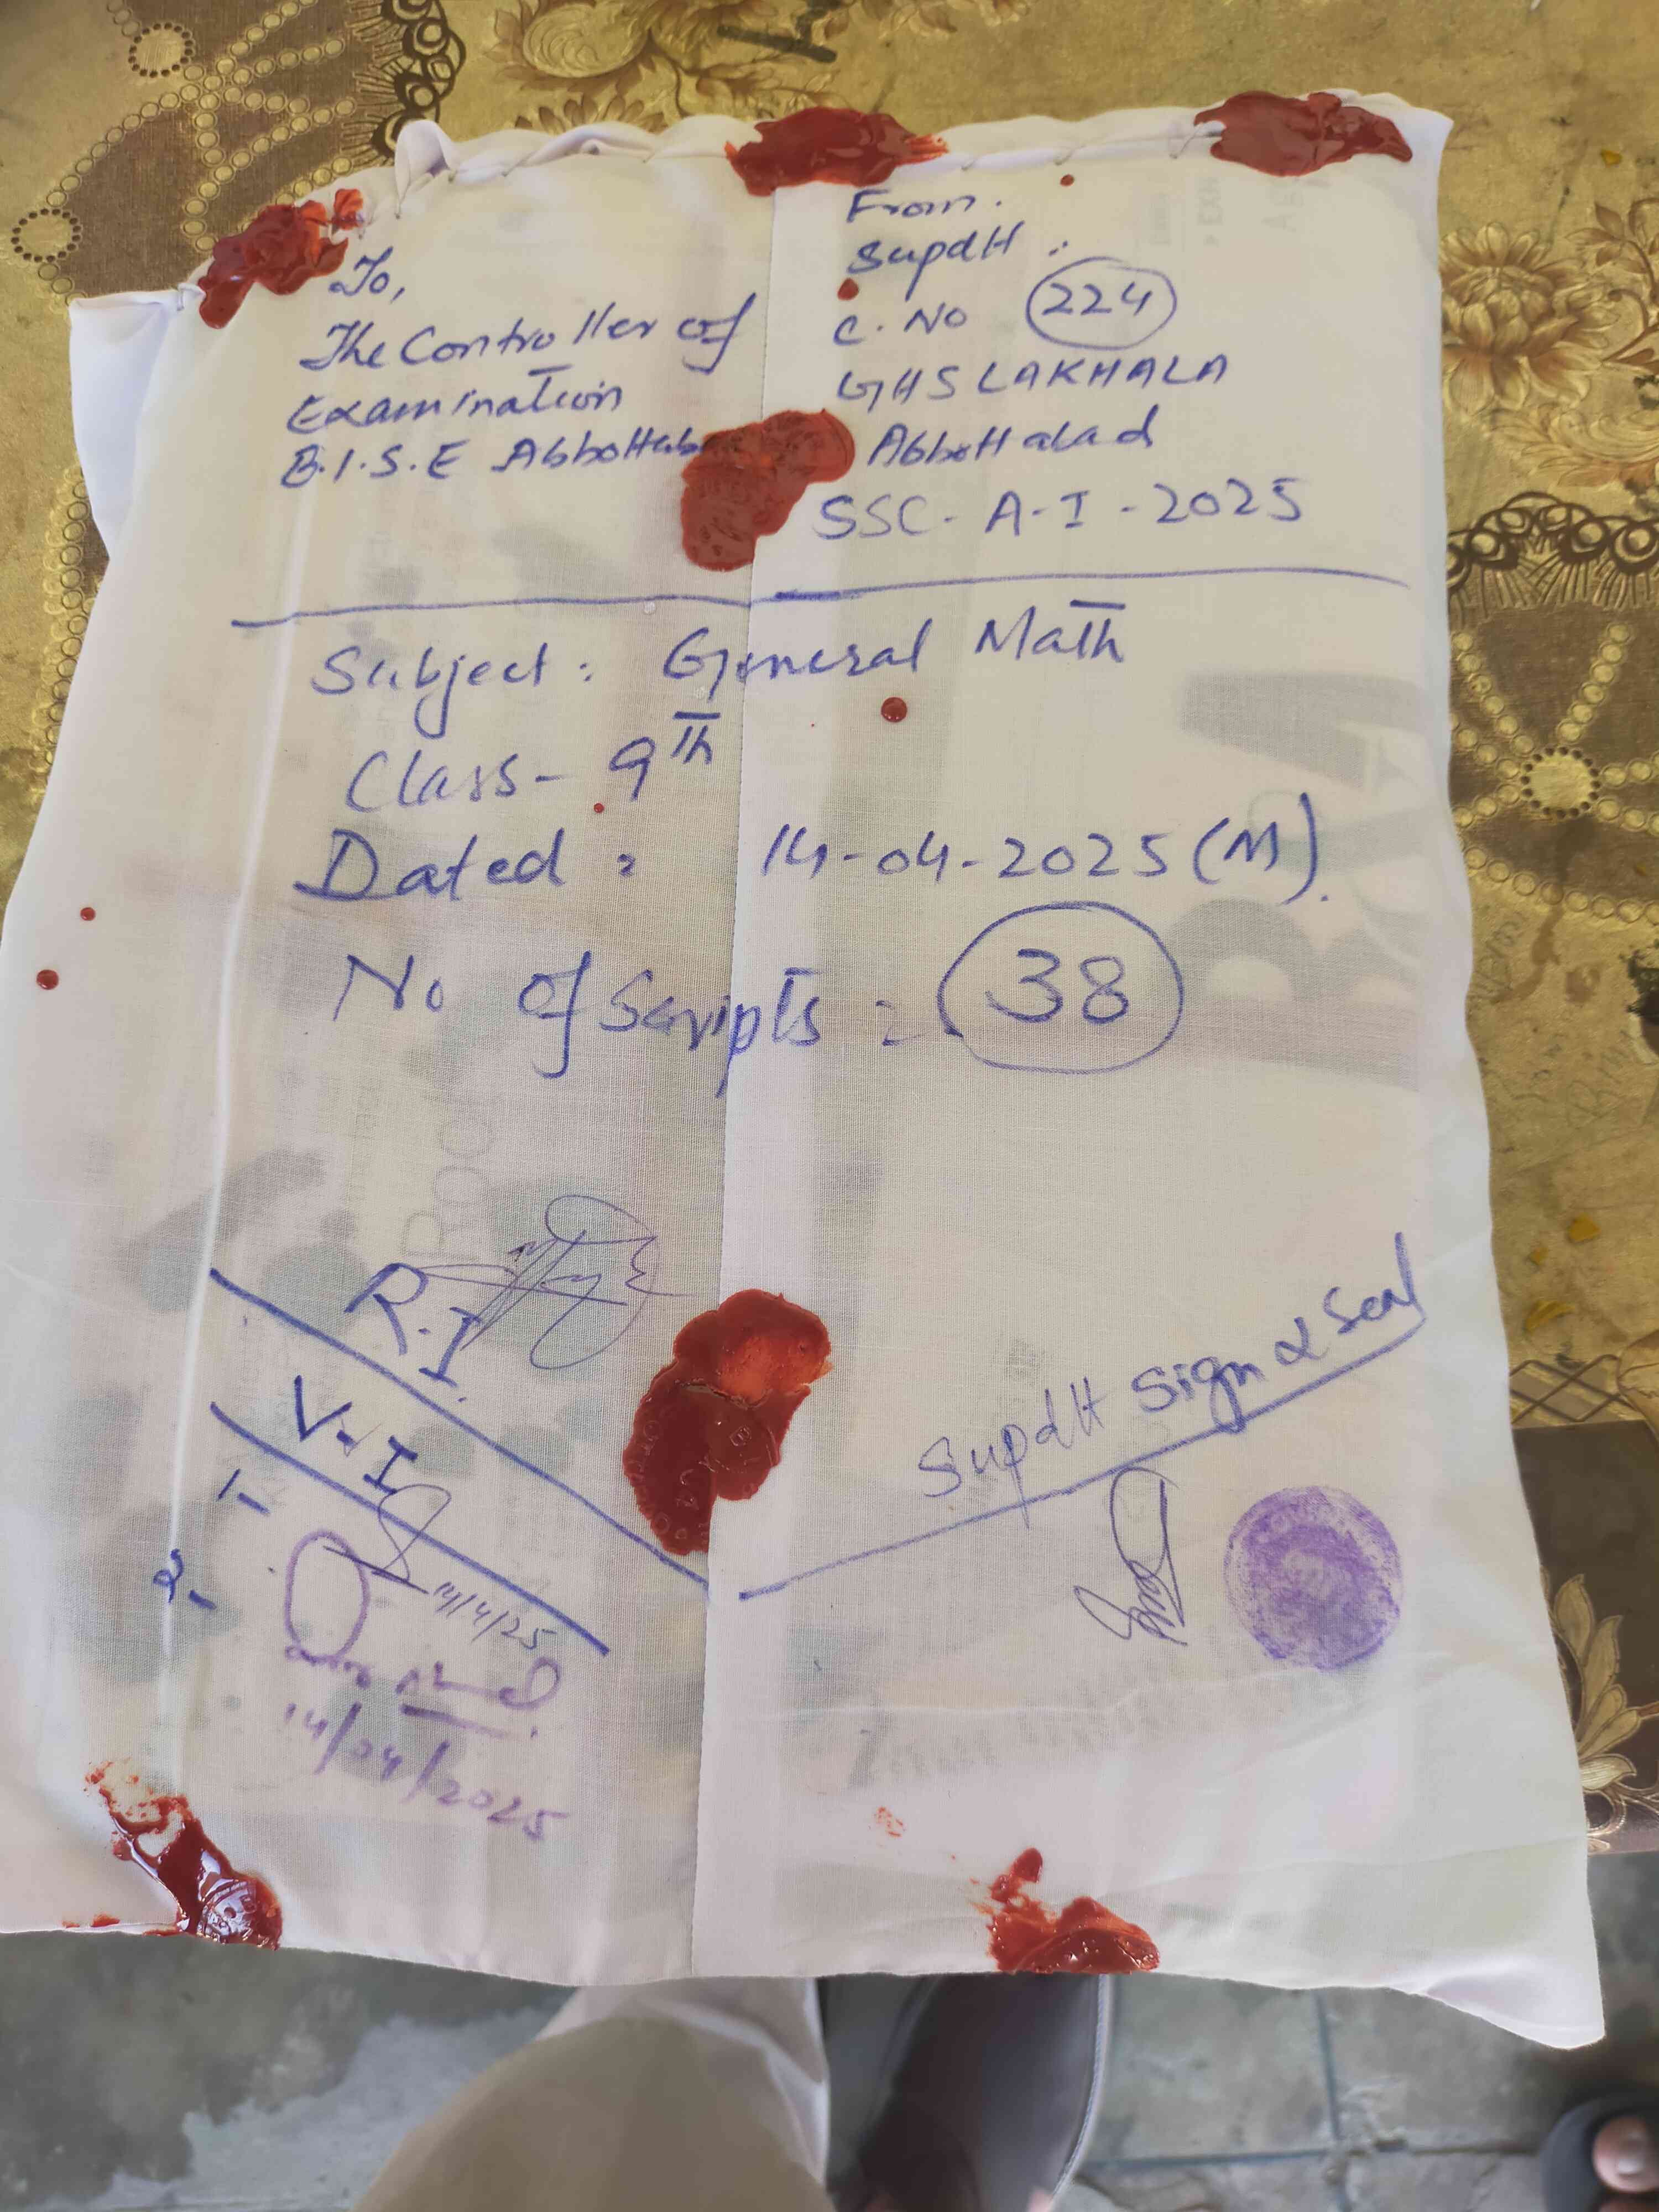 To,
The Controller of
Examination
B.I.S.E Abbottab
From.
Supdtt :
C. No 224
GHS LAKHALA
Abbottabad
SSC - A-I - 2025
Subject : General Math
Class - 9th
Dated : 14-04-2025 (M).
No of Scripts = 38
R.I.
V-I
1-
14/4/25
2-
14/04/2025
Supdtt Sign & Seal